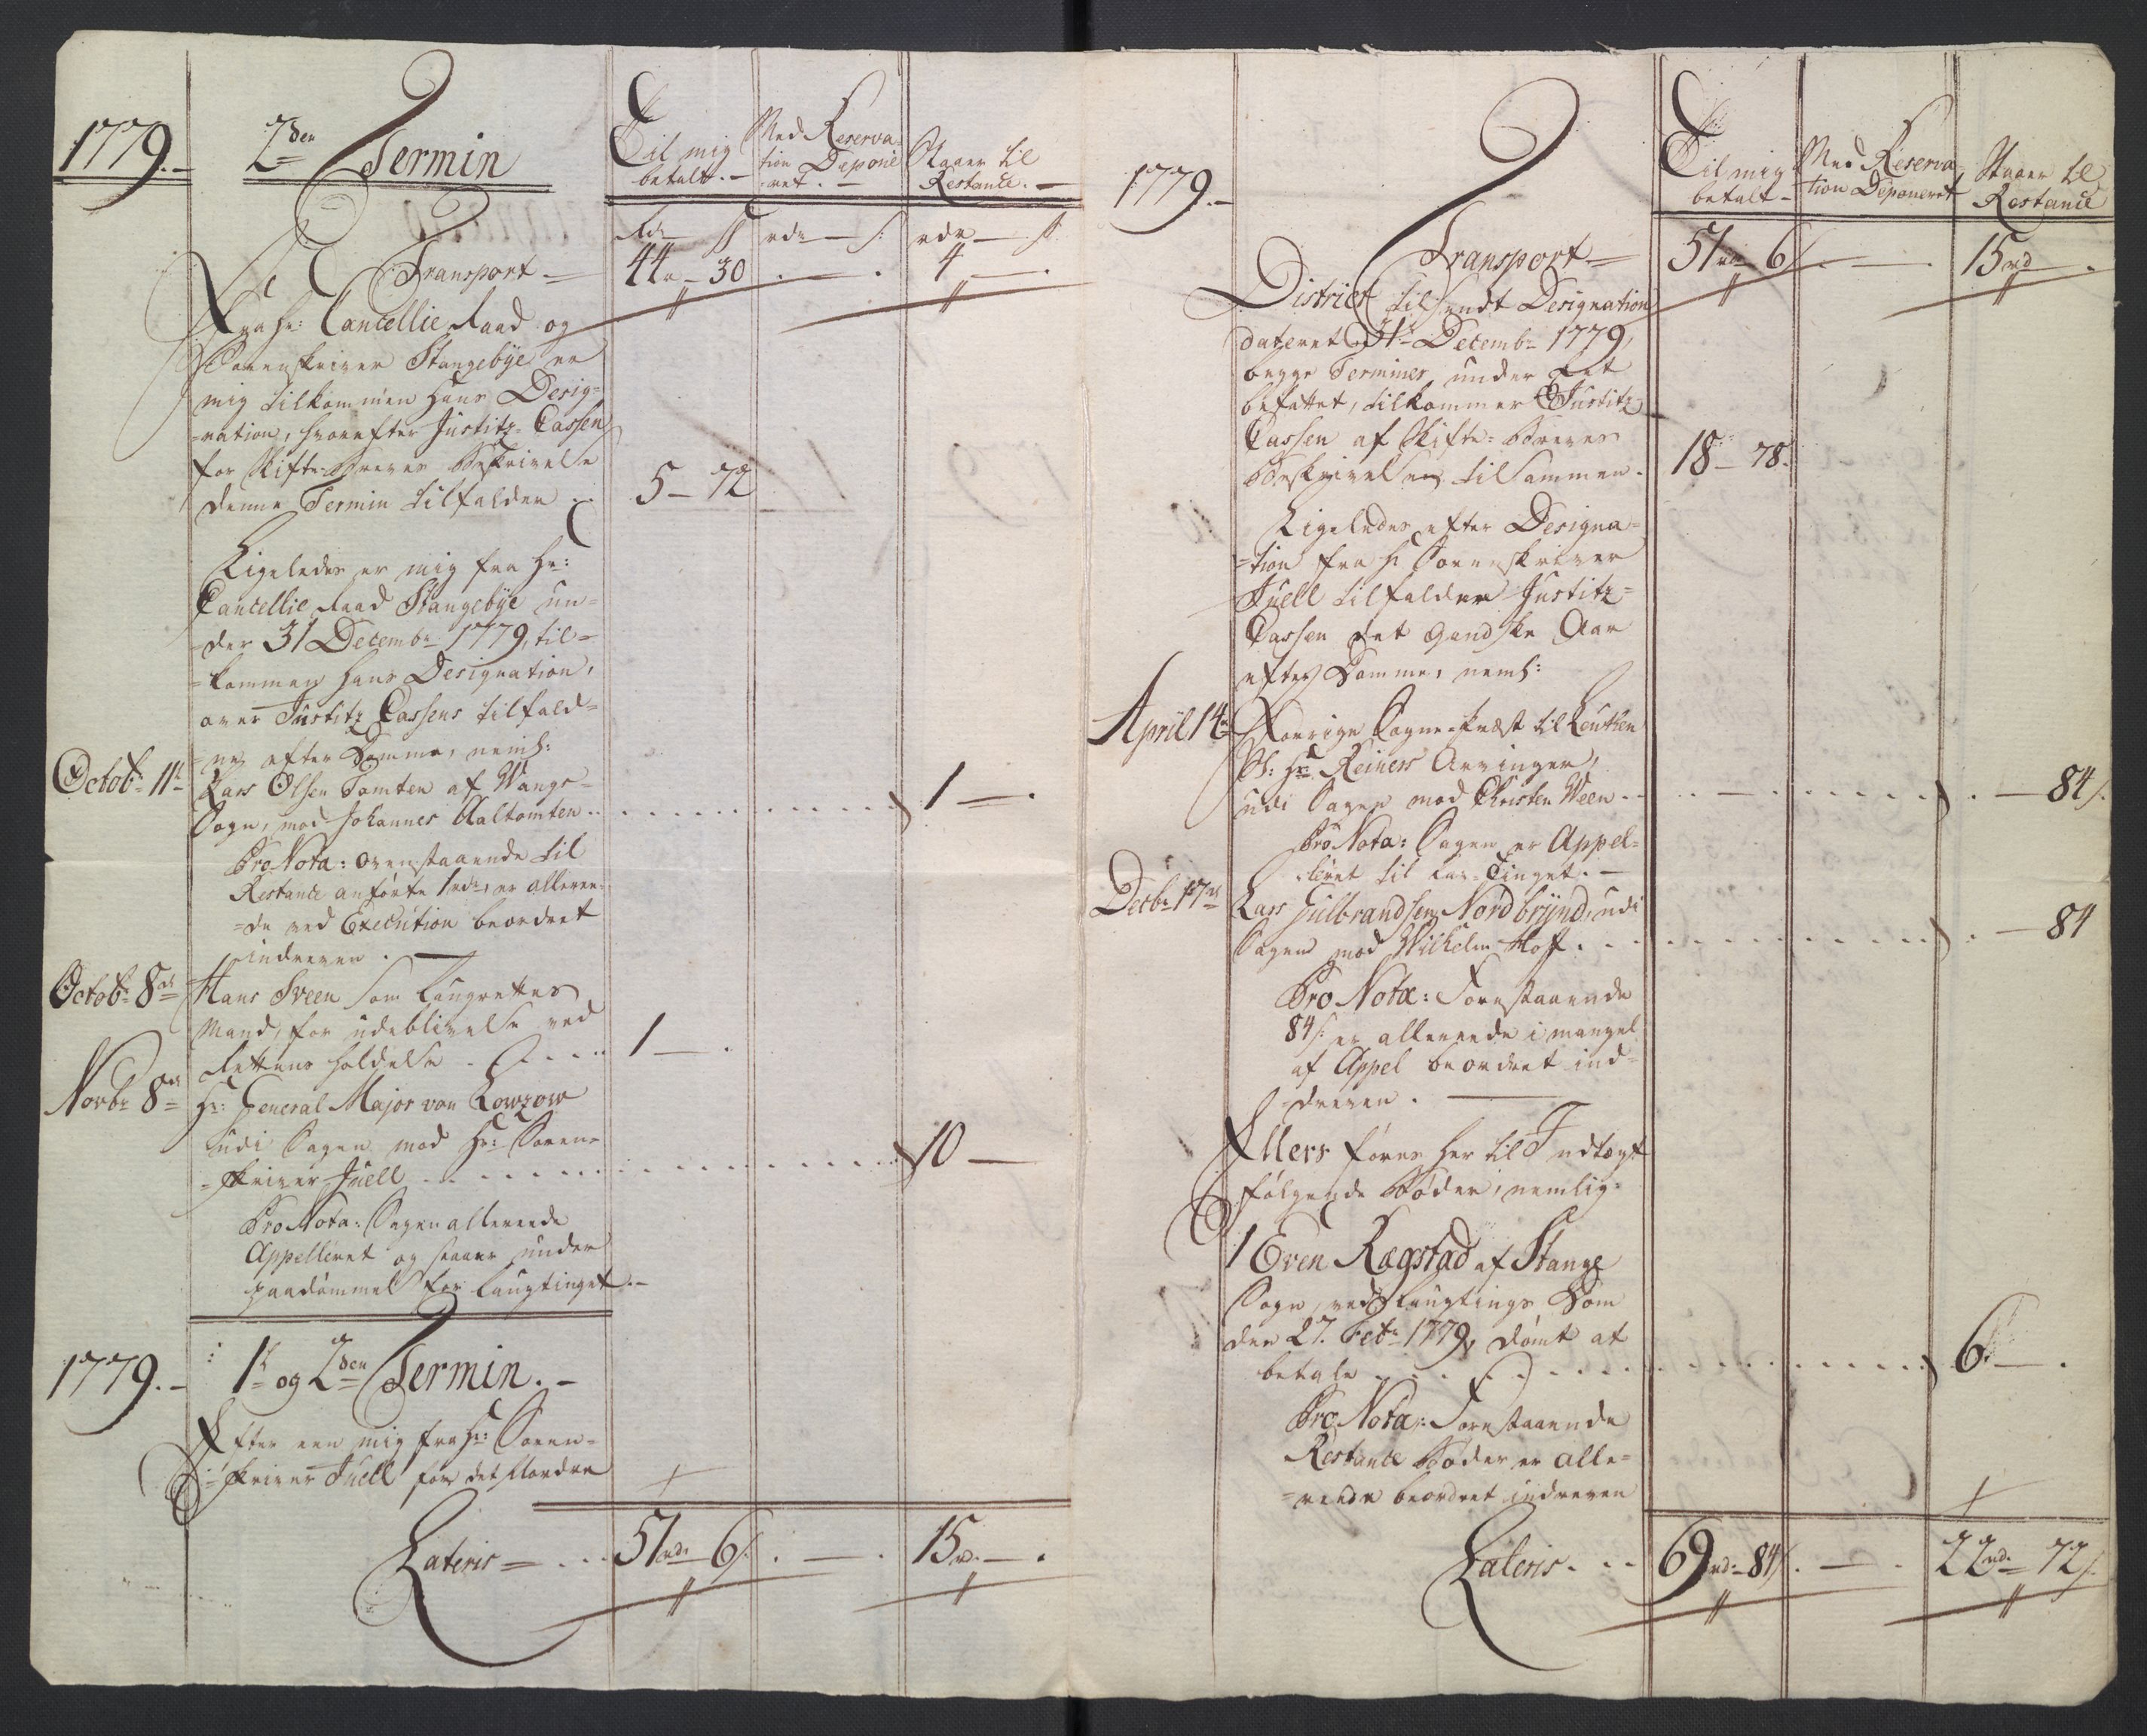 1779.-
2den Termin
Til mig
betalt.-
Med Reserva-
tion Depone-
ret.-
Staaer til
Restance.-
Rdr ß
rdr ß
rdr ß
Transport =
44r - 30 . — . 4 — .
Fra Hr: Cancellie Raad og
Sorenskriver Stangebÿe er
mig tilkommen hans Desig=
=nation, hvorefter Justitz=Cassen
for Skifte-Breves Beskrivelse
denne Termin tilfalder .. 5 — 72
Ligeledes er mig fra Hr:
Cancellie Raad Stangebÿe un=
=der 31 Decembr 1779, til=
=kommen hans Designation,
over Justitz Cassens tilfald=
=ne efter Domme, neml:
Octobr 11te Lars Olsen Tomten af Wangs-
Sogn, mod Johannes Aaltomten .. 1 — .
Pro Nota: ovenstaaende til
Restance anførte 1 rdr, er alleree=
=de ved Execution beordret
inddreven . —
Octobr 8de Hans Sveen som Laugrettes
Mand, for udeblivelse ved
Rettens holdelse . . . . . 1 — .
Novbr 8de Hr: General Major von Lowzow
udi Sagen mod Hr: Soren=
=skriver Juell . . . . . . 10 —
Pro Nota: Sagen allereede
Appelleret og staaer under
paadømmelse for Laugtinget.-
1779.- 1te og 2den Termin.-
Efter een mig fra Hr: Soren=
=skriver Juell for det Nordre
Lateris = . . . 51rdr 6ß . — . 15r. — .
1779.-
Til mig
betalt-
Med Reserva
tion Deponeret
Staaer til
Restance
Transport = 51rdr 6ß . — . 15rd — .
District tilsendt Designation
dateret 31te Decembr 1779,
begge Terminer under Eet
befattet, tilkommer Justitz
Cassen af Skifte=Breves
Beskrivelser tilsammen. 18 — 78.
Ligeledes efter Designa=
=tion fra Hr Sorenskriver
Juell tilfalder Justitz=
Cassen det gandske Aar
efter Domme, neml:
April 14de Forrige Sogne-Præst til Leuthen
Sl: Hr Reiners Arvinger,
udi Sagen mod Christen Ween . . . — 84ß.
Pro Nota: Sagen er Appel=
=leret til Lau-Tinget. —
Decbr 17de Lars Gulbrandsen Nordbrÿnd, udi
Sagen mod Wilhelm Hoff . . . — 84
Pro Nota: Forestaaende
84ß. er allereede i mangel
af Appel beordret ind=
=dreven . —
Ellers føres her til Indtægt
følgende Bøder, nemlig:
1 Even Ragstad af Stange
Sogn, ved Laugtings Dom
den 27. Febr 1779, dømt at
betale . . . . . . 6. — .
Pro Nota: Forestaaende
Restance Bøder er alle=
=reede beordret inddreven
Lateris . . . 69rdr 84ß. — . 22rd. 72ß.